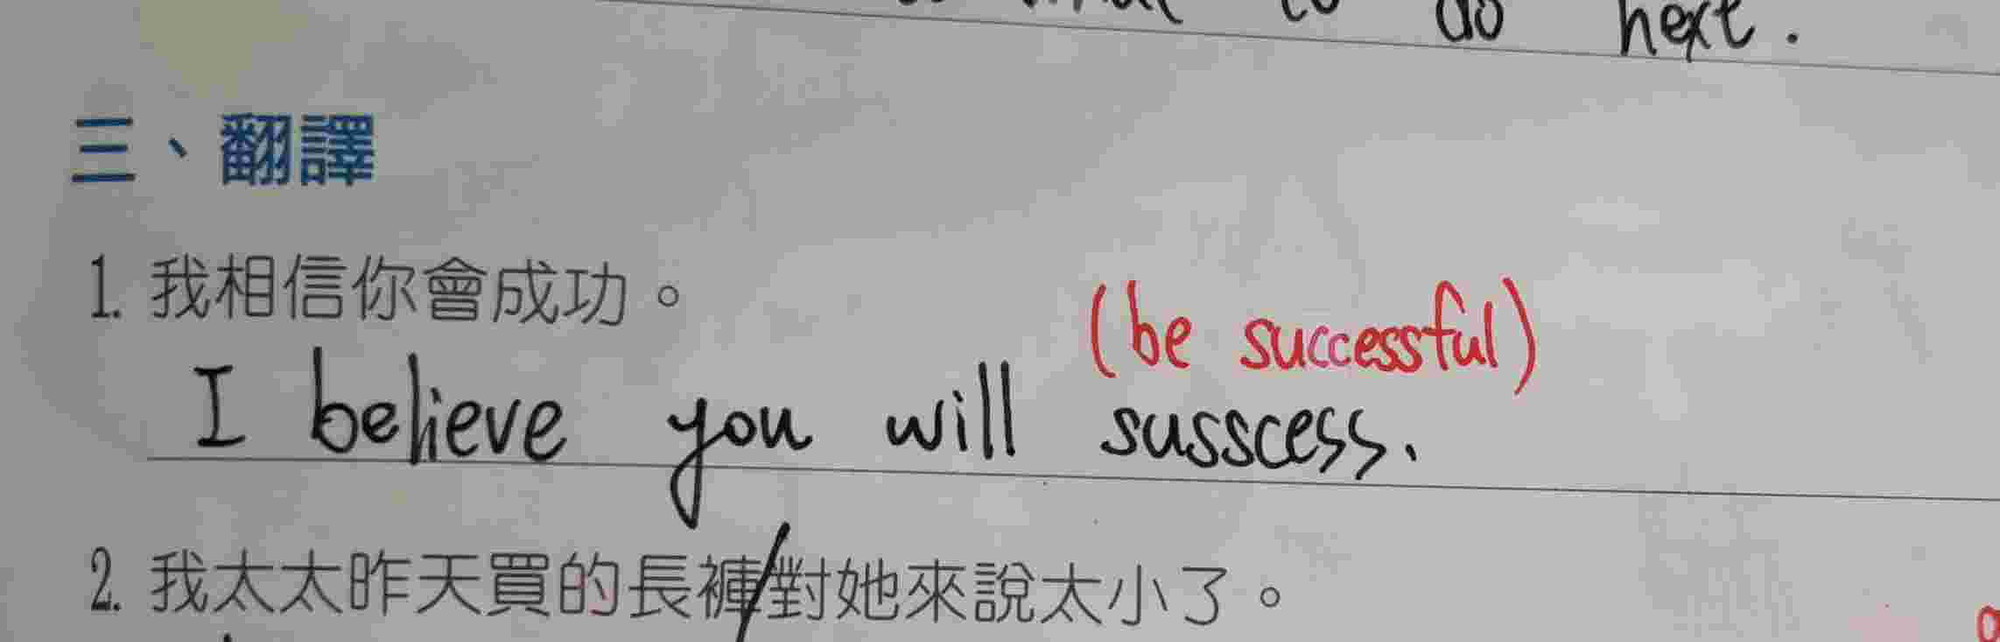 to do next.
三、翻譯
1. 我相信你會成功。
(be successful)
I believe you will susscess.
2. 我太太昨天買的長褲/對她來說太小了。